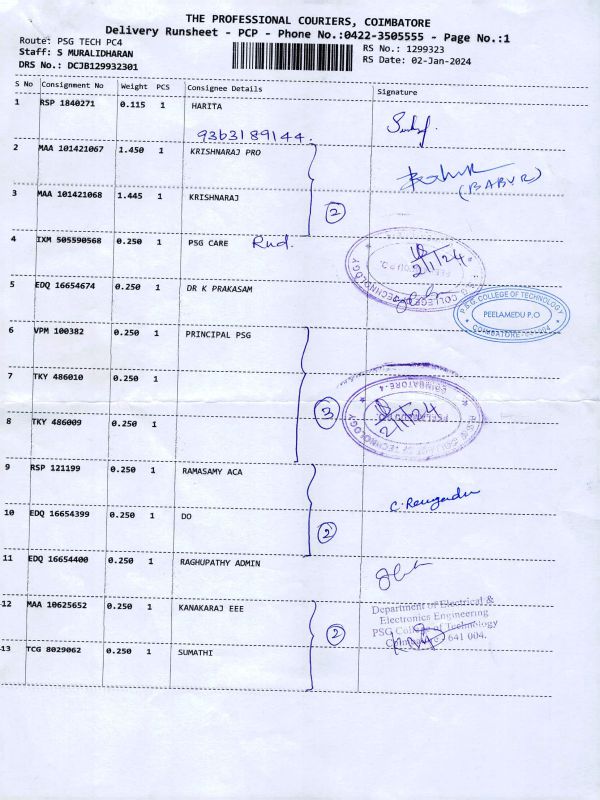 THE PROFESSIONAL COURIERS, COIMBATORE
Delivery Runsheet - PCP - Phone No.:0422-3505555 - Page No.:1
Route: PSG TECH PC4
RS No.: 1299323
Staff: S MURALIDHARAN
RS Date: 02-Jan-2024
DRS No.: DCJB129932301
S No Consignment No Weight PCS Consignee Details Signature
1 RSP 1840271 0.115 1 HARITA
9363189144.
2 MAA 101421067 1.450 1 KRISHNARAJ PRO
(BABU R)
3 MAA 101421068 1.445 1 KRISHNARAJ
2
4 IXM 505590568 0.250 1 PSG CARE Rnd.
2/1/24
5 EDQ 16654674 0.250 1 DR K PRAKASAM
P.S.G. COLLEGE OF TECHNOLOGY
PEELAMEDU P.O
COIMBATORE-641004
6 VPM 100382 0.250 1 PRINCIPAL PSG
7 TKY 486010 0.250 1
3
COIMBATORE-4
2/1/24
8 TKY 486009 0.250 1
9 RSP 121199 0.250 1 RAMASAMY ACA
10 EDQ 16654399 0.250 1 DO
2
11 EDQ 16654400 0.250 1 RAGHUPATHY ADMIN
12 MAA 10625652 0.250 1 KANAKARAJ EEE
Department of Electrical &
Electronics Engineering
PSG College of Technology
2
641 004.
13 TCG 8029062 0.250 1 SUMATHI